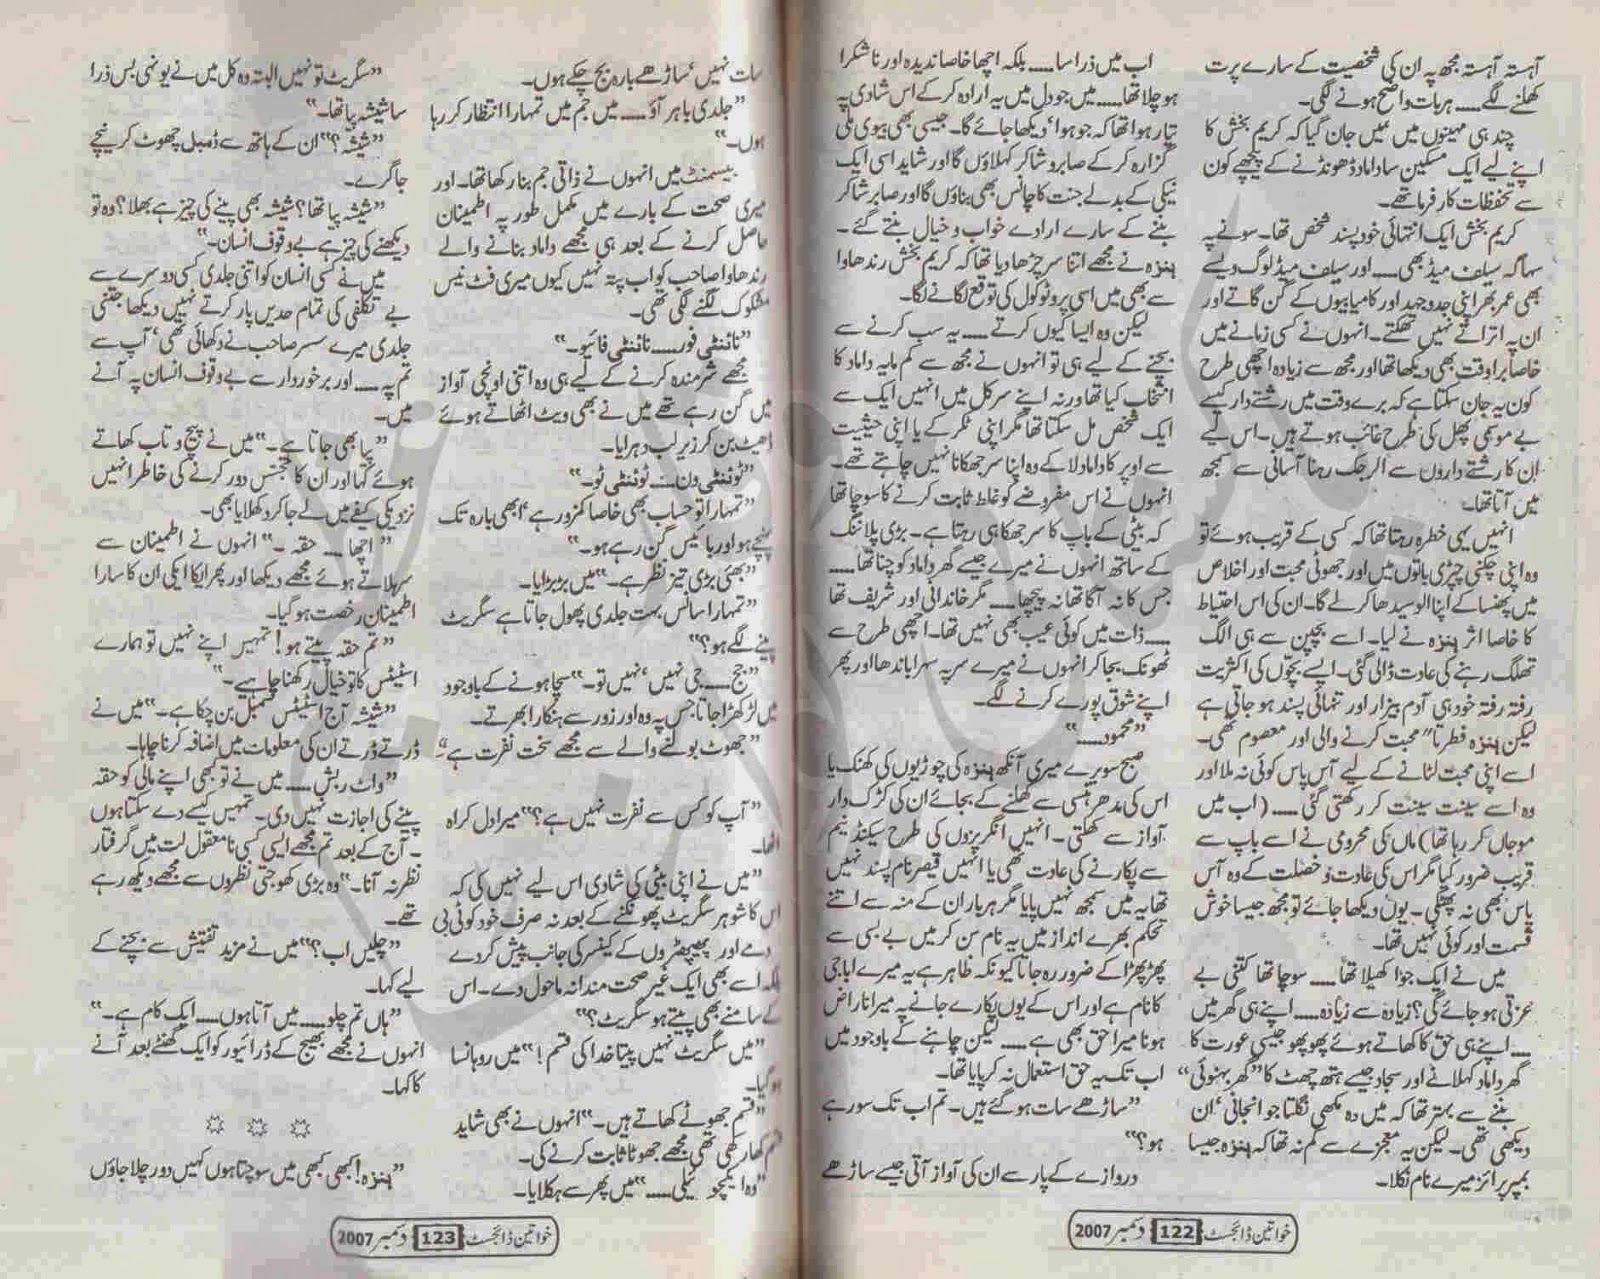 آہستہ آہستہ مجھ پہ ان کی شخصیت کے سارے پرت
کھلنے لگے۔۔۔۔ ہر بات واضح ہونے لگی۔
چند ہی مہینوں میں میں جان گیا کہ کریم بخش کا
اپنے لیے ایک مسکین سا داماد ڈھونڈنے کے پیچھے کون
سے تحفظات کار فرما تھے۔
کریم بخش ایک انتہائی خود پسند شخص تھا۔ سونے پہ
سہاگہ سیلف میڈ بھی۔۔۔۔ اور سیلف میڈ لوگ ویسے
بھی عمر بھر اپنی جدوجہد اور کامیابیوں کے گن گاتے اور
ان پہ اتراتے نہیں تھکتے۔ انہوں نے کسی زمانے میں
خاصا برا وقت بھی دیکھا تھا اور مجھ سے زیادہ اچھی طرح
کون یہ جان سکتا ہے کہ برے وقت میں رشتے دار کیسے
بے موسمی پھل کی طرح غائب ہوتے ہیں۔ اس لیے
ان کا رشتے داروں سے الرجک رہنا آسانی سے سمجھ
میں آتا تھا۔
انہیں یہی خطرہ رہتا تھا کہ کسی کے قریب ہوئے تو
وہ اپنی چکنی چپڑی باتوں میں اور جھوٹی محبت اور اخلاص
میں پھنسا کے اپنا الو سیدھا کر لے گا۔ ان کی اس احتیاط
کا خاصا اثر ہنزہ نے لیا۔ اسے بچپن سے ہی الگ
تھلگ رہنے کی عادت ڈالی گئی۔ ایسے بچوں کی اکثریت
رفتہ رفتہ خود ہی آدم بیزار اور تنہائی پسند ہو جاتی ہے
لیکن ہنزہ فطرتاً محبت کرنے والی اور معصوم تھی۔
اسے اپنی محبت لٹانے کے لیے آس پاس کوئی نہ ملا اور
وہ اسے سینت سینت کر رکھتی گئی۔۔۔۔ (اب میں
موجاں کر رہا تھا) ماں کی محرومی نے اسے باپ سے
قریب ضرور کیا مگر اس کی عادت و خصلت کے وہ آس
پاس بھی نہ پھٹکی۔ یوں دیکھا جائے تو مجھ جیسا خوش
قسمت اور کوئی نہیں تھا۔
میں نے ایک جوا کھیلا تھا۔۔۔۔ سوچا تھا کتنی بے
عزتی ہو جائے گی؟ زیادہ سے زیادہ۔۔۔۔ اپنے ہی گھر میں
۔۔۔۔ اپنے ہی حق کا کھاتے ہوئے پھوپھو جیسی عورت کا
گھر داماد کہلانے اور سجاد جیسے ہتھ چھٹ کا ”گھر بہنوئی“
بننے سے بہتر تھا کہ میں وہ مکھی نگلتا جو انجانی‘ ان
دیکھی تھی۔ لیکن یہ معجزے سے کم نہ تھا کہ ہنزہ جیسا
بمپر پرائز میرے نام نکلا۔
اب میں ذرا سا۔۔۔۔ بلکہ اچھا خاصا ندیدہ اور ناشکرا
ہو چلا تھا۔۔۔۔ میں جو دل میں یہ ارادہ کر کے اس شادی پہ
تیار ہوا تھا کہ جو ہوا‘ دیکھا جائے گا۔ جیسی بھی بیوی ملی
گزارہ کر کے صابر و شاکر کہلاؤں گا اور شاید اسی ایک
نیکی کے بدلے جنت کا چانس بھی بناؤں گا اور صابر شاکر
بننے کے سارے ارادے خواب و خیال بنتے گئے۔
ہنزہ نے مجھے اتنا سر چڑھا دیا تھا کہ کریم بخش رندھاوا
سے بھی میں اسی پروٹوکول کی توقع لگانے لگا۔
لیکن وہ ایسا کیوں کرتے۔۔۔۔ یہ سب کرنے سے
بچنے کے لیے ہی تو انہوں نے مجھ سے کم مایہ داماد کا
انتخاب کیا تھا ورنہ اپنے سرکل میں انہیں ایک سے
ایک شخص مل سکتا تھا مگر اپنی ٹکر کے یا اپنی حیثیت
سے اوپر کا داماد لا کے وہ اپنا سر جھکانا نہیں چاہتے تھے۔
انہوں نے اس مفروضے کو غلط ثابت کرنے کا سوچا تھا
کہ بیٹی کے باپ کا سر جھکا ہی رہتا ہے۔ بڑی پلاننگ
کے ساتھ انہوں نے میرے جیسے گھر داماد کو چنا تھا۔۔۔۔
جس کا نہ آگا تھا نہ پیچھا۔۔۔۔ مگر خاندانی اور شریف تھا
۔۔۔۔ ذات میں کوئی عیب بھی نہیں تھا۔ اچھی طرح سے
ٹھونک بجا کر انہوں نے میرے سر پہ سہرا باندھا اور پھر
اپنے شوق پورے کرنے لگے۔
”محمود۔۔۔۔“
صبح سویرے میری آنکھ ہنزہ کی چوڑیوں کی کھنک یا
اس کی مدھر ہنسی سے کھلنے کے بجائے ان کی کڑک دار
آواز سے کھلتی۔ انہیں انگریزوں کی طرح سیکنڈ نیم
سے پکارنے کی عادت تھی یا انہیں قیصر نام پسند نہیں
تھا یہ میں سمجھ نہیں پایا مگر ہر بار ان کے منہ سے اتنے
تحکم بھرے انداز میں یہ نام سن کر میں بے بسی سے
پھڑپھڑا کے ضرور رہ جاتا کیونکہ ظاہر ہے یہ میرے ابا جی
کا نام ہے اور اس کے یوں پکارے جانے پہ میرا ناراض
ہونا میرا حق بھی ہے۔۔۔۔ لیکن چاہنے کے باوجود میں
اب تک یہ حق استعمال نہ کر پایا تھا۔
”ساڑھے سات ہو گئے ہیں۔ تم اب تک سو رہے
ہو؟“
دروازے کے پار سے ان کی آواز آتی جیسے ساڑھے
خواتین ڈائجسٹ 122 دسمبر 2007
سات نہیں‘ ساڑھے بارہ بج چکے ہوں۔
”جلدی باہر آؤ۔۔۔۔ میں جم میں تمہارا انتظار کر رہا
ہوں۔“
بیسمنٹ میں انہوں نے ذاتی جم بنا رکھا تھا۔ اور
میری صحت کے بارے میں مکمل طور پہ اطمینان
حاصل کرنے کے بعد ہی مجھے داماد بنانے والے
رندھاوا صاحب کو اب پتہ نہیں کیوں میری فٹ نیس
مشکوک لگنے لگی تھی۔
”نائنٹی فور۔۔۔۔ نائنٹی فائیو۔“
مجھے شرمندہ کرنے کے لیے ہی وہ اتنی اونچی آواز
میں گن رہے تھے میں نے بھی ویٹ اٹھاتے ہوئے
ڈھیٹ بن کر زیر لب دہرایا۔
”ٹوئنٹی ون۔۔۔۔ ٹوئنٹی ٹو۔“
”تمہارا تو حساب بھی خاصا کمزور ہے‘ ابھی بارہ تک
پہنچے ہو اور بائیس گن رہے ہو۔“
”بھئی بڑی تیز نظر ہے۔“ میں بڑبڑایا۔
”تمہارا سانس بہت جلدی پھول جاتا ہے سگریٹ
پینے لگے ہو؟“
”جج۔۔۔۔ جی نہیں‘ نہیں تو۔“ سچا ہونے کے باوجود
میں لڑکھڑا جاتا‘ جس پہ وہ اور زور سے ہنکارا بھرتے۔
”جھوٹ بولنے والے سے مجھے سخت نفرت ہے۔“
”آپ کو کس سے نفرت نہیں ہے؟“ میرا دل کراہ
اٹھا۔
”میں نے اپنی بیٹی کی شادی اس لیے نہیں کی کہ
اس کا شوہر سگریٹ پھونکنے کے بعد نہ صرف خود کو ٹی بی
دے اور پھیپھڑوں کے کینسر کی جانب پیش کر دے
بلکہ اسے بھی ایک غیر صحت مندانہ ماحول دے۔ اس
کے سامنے بھی پیتے ہو سگریٹ؟“
”میں سگریٹ نہیں پیتا خدا کی قسم!“ میں روہانسا
ہو گیا۔
”قسم جھوٹے کھاتے ہیں۔“ انہوں نے بھی شاید
قسم کھا رکھی تھی مجھے جھوٹا ثابت کرنے کی۔
”وہ ایکچوئیلی۔۔۔۔“ میں پھر سے ہکلایا۔
”سگریٹ تو نہیں البتہ وہ کل میں نے یونہی بس ذرا
سا شیشہ پیا تھا۔“
”شیشہ؟“ ان کے ہاتھ سے ڈمبل چھوٹ کر نیچے
جا گرے۔
”شیشہ پیا تھا؟ شیشہ بھی پینے کی چیز ہے بھلا؟ وہ تو
دیکھنے کی چیز ہے بے وقوف انسان۔“
میں نے کسی انسان کو اتنی جلدی کسی دوسرے سے
بے تکلفی کی تمام حدیں پار کرتے نہیں دیکھا جتنی
جلدی میرے سسر صاحب نے دکھائی تھی‘ آپ سے
تم پہ۔۔۔۔ اور برخوردار سے بے وقوف انسان پہ آنے
میں۔
”پیا بھی جاتا ہے۔“ میں نے پیچ و تاب کھاتے
ہوئے کہا اور ان کا تجسس دور کرنے کی خاطر انہیں
نزدیکی کیفے میں لے جا کر دکھلایا بھی۔
”اچھا۔۔۔۔ حقہ۔“ انہوں نے اطمینان سے
سہلاتے ہوئے مجھے دیکھا اور پھر ایکا ایکی ان کا سارا
اطمینان رخصت ہو گیا۔
”تم حقہ پیتے ہو! تمہیں اپنے نہیں تو ہمارے
اسٹیٹس کا تو خیال رکھنا چاہیے۔“
”شیشہ آج اسٹیٹس سمبل بن چکا ہے۔“ میں نے
ڈرتے ڈرتے ان کی معلومات میں اضافہ کرنا چاہا۔
”واٹ ربش۔۔۔۔ میں نے تو کبھی اپنے مالی کو حقہ
پینے کی اجازت نہیں دی۔ تمہیں کیسے دے سکتا ہوں
۔ آج کے بعد تم مجھے ایسی کسی نامعقول لت میں گرفتار
نظر نہ آنا۔“ وہ بڑی کھوجتی نظروں سے مجھے دیکھ رہے
تھے۔
”چلیں اب؟“ میں نے مزید تفتیش سے بچنے کے
لیے کہا۔
”ہاں تم چلو۔۔۔۔ میں آتا ہوں۔۔۔۔ ایک کام ہے۔“
انہوں نے مجھے بھیج کے ڈرائیور کو ایک گھنٹے بعد آنے
کا کہا۔
”ہنزہ! کبھی کبھی میں سوچتا ہوں کہیں دور چلا جاؤں
خواتین ڈائجسٹ 123 دسمبر 2007